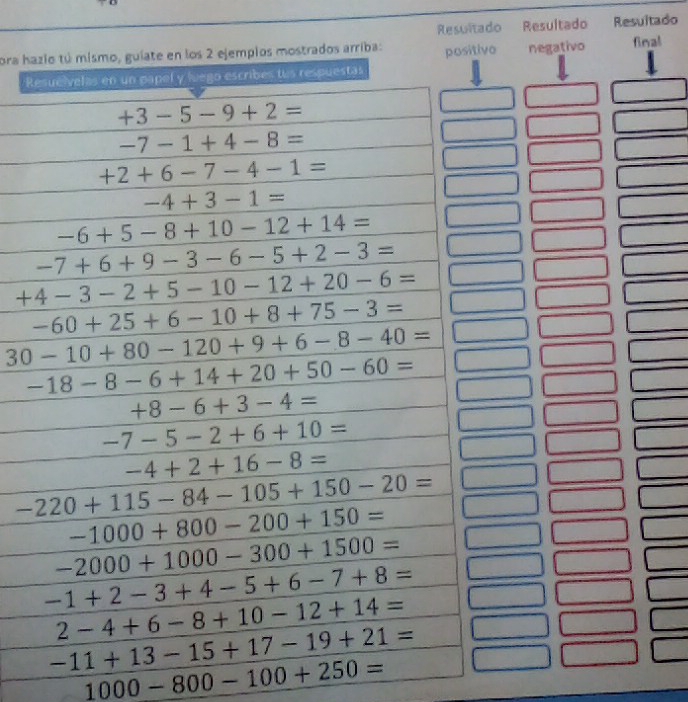 Resultado positivo
Resultado negativo
Resultado final
ora hazlo tú mismo, guíate en los 2 ejemplos mostrados arriba:
Resuélvelas en un papel y luego escribes tus respuestas
+3 − 5 − 9 + 2 =
−7 − 1 + 4 − 8 =
+2 + 6 − 7 − 4 − 1 =
−4 + 3 − 1 =
−6 + 5 − 8 + 10 − 12 + 14 =
−7 + 6 + 9 − 3 − 6 − 5 + 2 − 3 =
+4 − 3 − 2 + 5 − 10 − 12 + 20 − 6 =
−60 + 25 + 6 − 10 + 8 + 75 − 3 =
30 − 10 + 80 − 120 + 9 + 6 − 8 − 40 =
−18 − 8 − 6 + 14 + 20 + 50 − 60 =
+8 − 6 + 3 − 4 =
−7 − 5 − 2 + 6 + 10 =
−4 + 2 + 16 − 8 =
−220 + 115 − 84 − 105 + 150 − 20 =
−1000 + 800 − 200 + 150 =
−2000 + 1000 − 300 + 1500 =
−1 + 2 − 3 + 4 − 5 + 6 − 7 + 8 =
2 − 4 + 6 − 8 + 10 − 12 + 14 =
−11 + 13 − 15 + 17 − 19 + 21 =
1000 − 800 − 100 + 250 =